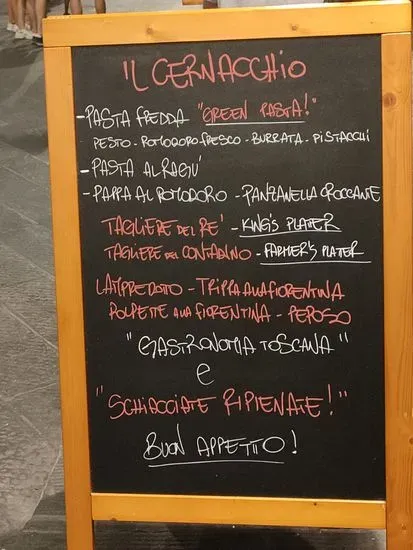 IL CERNACCHIO
-PASTA FREDDA "GREEN PASTA!"
PESTO - POMODORO FRESCO - BURRATA - PISTACCHI
-PASTA AL RAGU'
-PAPPA AL POMODORO - PANZANELLA CROCCANTE
TAGLIERE DEL RE' - KING'S PLATER
TAGLIERE DEL CONTADINO - FARMER'S PLATER
LAMPREDOTO - TRIPPA ALLA FIORENTINA
POLPETTE ALLA FIORENTINA - PEPOSO
"GASTRONOMIA TOSCANA"
E
"SCHIACCIATE RIPIENATE!"
BUON APPETTO!